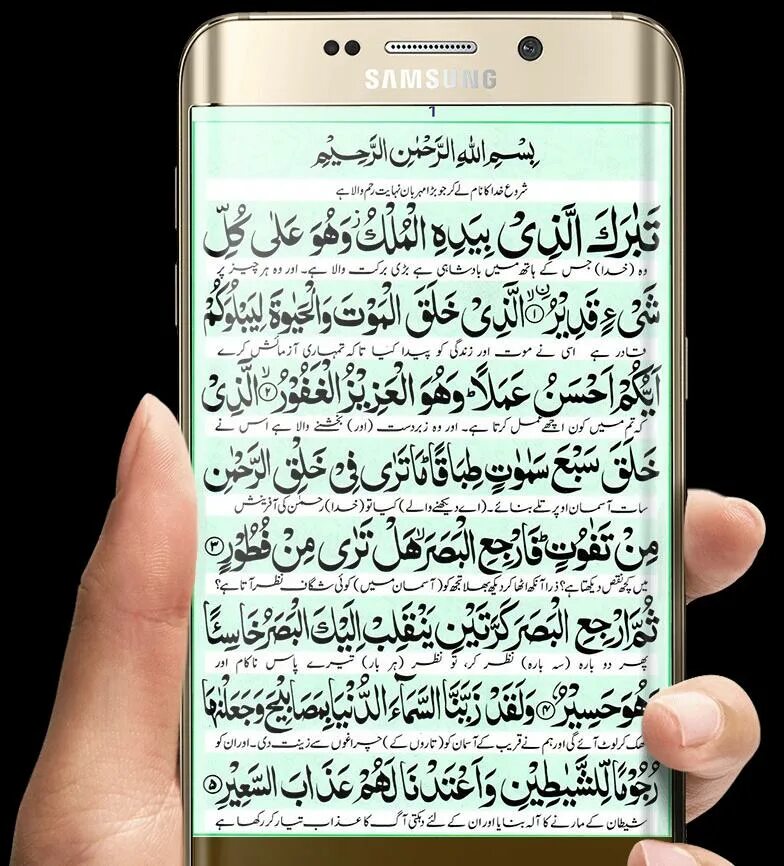 SAMSUNG
1
بِسْمِ اللهِ الرَّحْمٰنِ الرَّحِيْمِ
شروع خدا کا نام لے کر جو بڑا مہربان نہایت رحم والا ہے
تَبٰرَكَ الَّذِىْ بِيَدِهِ الْمُلْكُ ز وَهُوَ عَلٰى كُلِّ
وہ (خدا) جس کے ہاتھ میں بادشاہی ہے بڑی برکت والا ہے۔ اور وہ ہر چیز پر
شَىْءٍ قَدِيْرُ ۙ﴿۱﴾ ۨالَّذِىْ خَلَقَ الْمَوْتَ وَالْحَيٰوةَ لِيَبْلُوَكُمْ
قادر ہے اسی نے موت اور زندگی کو پیدا کیا تاکہ تمہاری آزمائش کرے
اَيُّكُمْ اَحْسَنُ عَمَلًا ؕ وَهُوَ الْعَزِيْزُ الْغَفُوْرُ ۙ﴿۲﴾ الَّذِىْ
کہ تم میں کون اچھے عمل کرتا ہے۔ اور وہ زبردست (اور) بخشنے والا ہے اس نے
خَلَقَ سَبْعَ سَمٰوٰتٍ طِبَاقًا ؕ مَا تَرٰى فِىْ خَلْقِ الرَّحْمٰنِ
سات آسمان اوپر تلے بنائے۔ (اے دیکھنے والے) کیا تو (خدا) رحمٰن کی آفرینش
مِنْ تَفٰوُتٍ ؕ فَارْجِعِ الْبَصَرَ ۙ هَلْ تَرٰى مِنْ فُطُوْرٍ ﴿۳﴾
میں کچھ نقص دیکھتا ہے؟ ذرا آنکھ اٹھا کر دیکھ بھلا تجھ کو (آسمان میں) کوئی شگاف نظر آتا ہے؟
ثُمَّ ارْجِعِ الْبَصَرَ كَرَّتَيْنِ يَنْقَلِبْ اِلَيْكَ الْبَصَرُ خَاسِئًا
پھر دو بارہ (سہ بارہ) نظر کر، تو نظر (ہر بار) تیرے پاس ناکام اور
وَهُوَ حَسِيْرٌ ﴿۴﴾ وَلَقَدْ زَيَّنَّا السَّمَآءَ الدُّنْيَا بِمَصَابِيْحَ وَجَعَلْنٰهَا
تھک کر لوٹ آئے گی اور ہم نے قریب کے آسمان کو (تاروں کے) چراغوں سے زینت دی۔ اور ان کو
رُجُوْمًا لِّلشَّيٰطِيْنِ وَاَعْتَدْنَا لَهُمْ عَذَابَ السَّعِيْرِ ﴿۵﴾
شیطان کے مارنے کا آلہ بنایا اور ان کے لئے دہکتی آگ کا عذاب تیار کر رکھا ہے